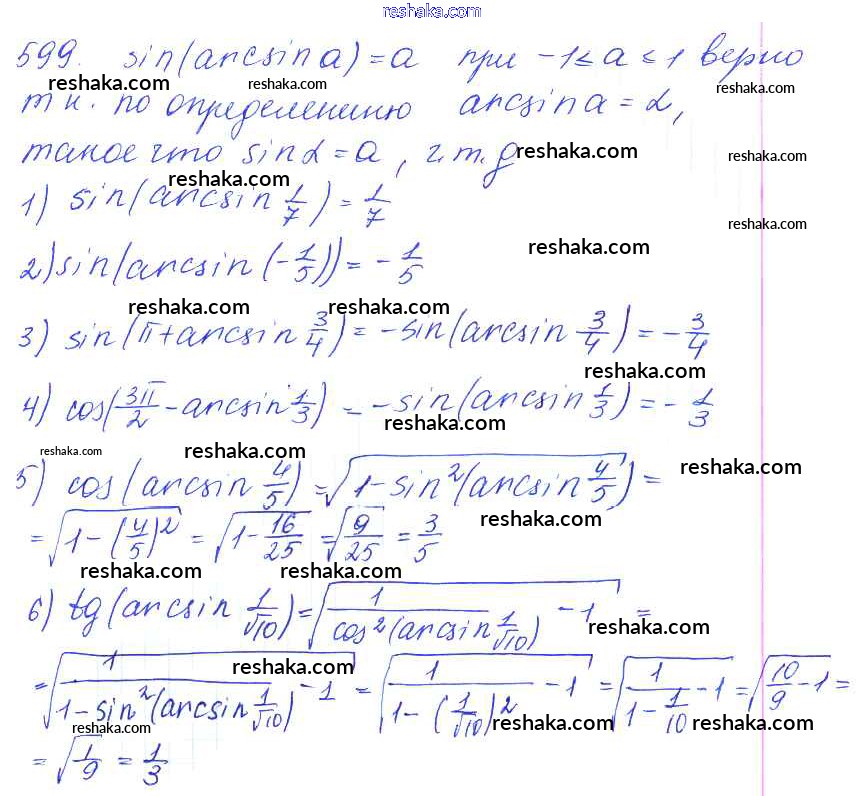 reshaka.com
599. sin(arcsin a) = a при -1 ≤ a ≤ 1 верно
reshaka.com reshaka.com reshaka.com
т к. по определению arcsin a = α,
такое что sin α = a, ч.т.д reshaka.com reshaka.com
reshaka.com
1) sin(arcsin 1/7) = 1/7
reshaka.com
reshaka.com
2) sin(arcsin(-1/5)) = -1/5
reshaka.com reshaka.com
3) sin(π + arcsin 3/4) = -sin(arcsin 3/4) = -3/4
reshaka.com
4) cos(3π/2 - arcsin 1/3) = -sin(arcsin 1/3) = -1/3
reshaka.com reshaka.com reshaka.com
5) cos(arcsin 4/5) = √(1 - sin²(arcsin 4/5)) = reshaka.com
reshaka.com
= √(1 - (4/5)²) = √(1 - 16/25) = √(9/25) = 3/5
reshaka.com reshaka.com
6) tg(arcsin 1/√10) = √(1/cos²(arcsin 1/√10) - 1) =
reshaka.com
reshaka.com
= √(1/(1 - sin²(arcsin 1/√10)) - 1) = √(1/(1 - (1/√10)²) - 1) = √(1/(1 - 1/10) - 1) = √(10/9 - 1) =
reshaka.com reshaka.com reshaka.com
= √(1/9) = 1/3
reshaka.com